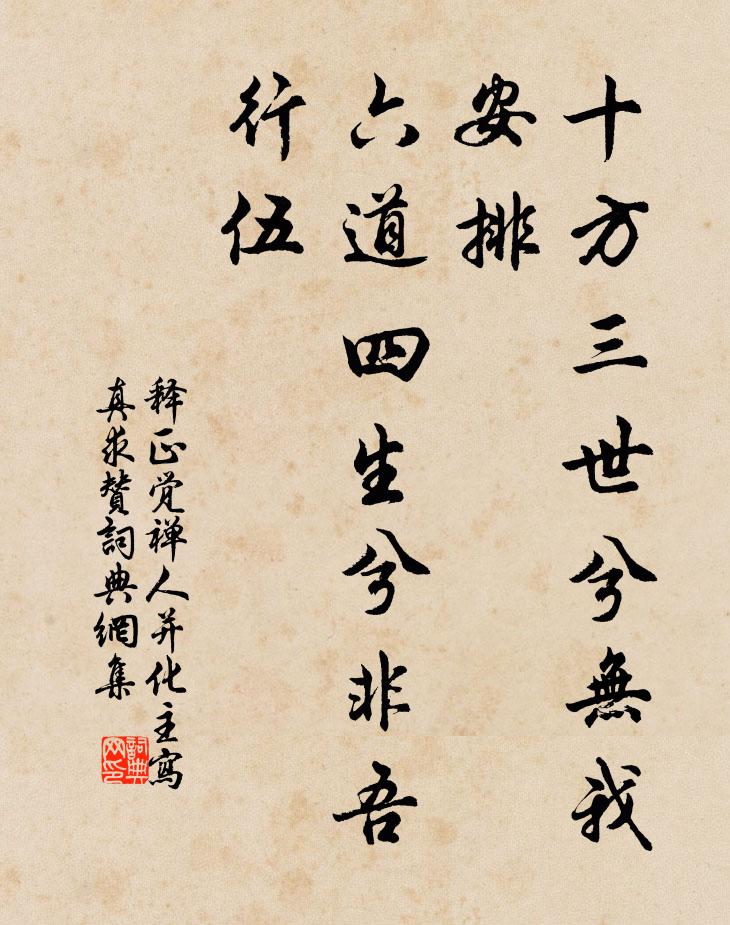 十方三世兮無我
安排
六道四生兮非吾
行伍
释正覺禅人并化主寫
真求贊詞典網集
詞典网印